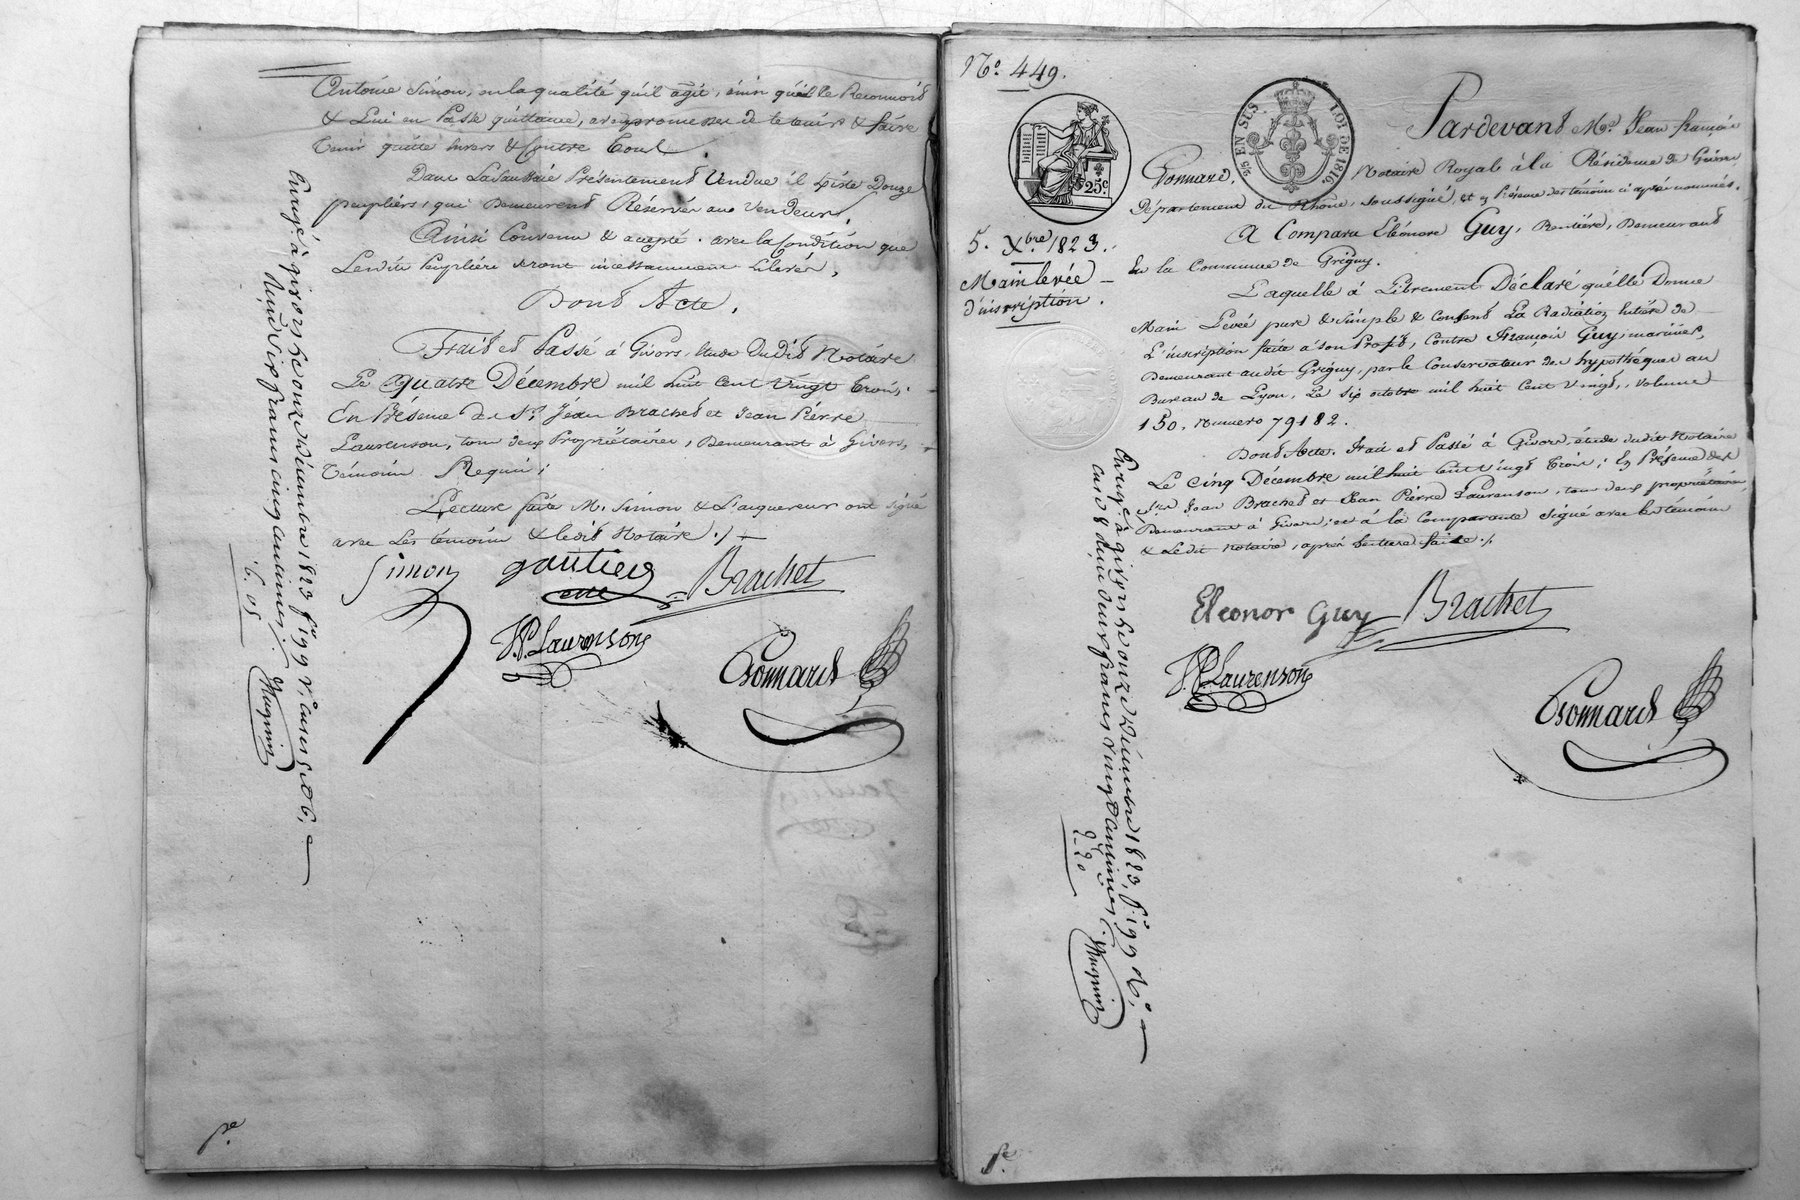 Antoine Simon, en la qualité qu'il agit, ainsi qu'il le Reconnoit
& Lui en Passe quittance, avec promesse de le tenir & faire
Tenir quitte Envers & Contre Tout.
Dans La Saussaie Présentement Vendue il Existe Douze
peupliers, qui Demeurent Réservés aux Vendeurs,
Ainsi Convenu & accepté. avec la Condition que
Lesdits Peupliers seront incessamment
Dont Acte,
Fait et Passé à Givors, étude Dudit Notaire
Le Quatre Décembre mil huit cent vingt Trois,
En Présence de Srs Jean Brachet et Jean Pierre
Laurenson, tous deux Propriétaires, Demeurant à Givors,
Témoins Requis;
Lecture faite M. Simon & L'acquereur ont signé
avec Les témoins & ledit Notaire ./.
Simon
gautier
Brachet
J.P. Laurenson
Gonnard
Enregé à givors le onze Décembre 1823 fo 199 Vo cases 5 et 6,
six francs cinq centimes
6. 05
Mugnin
No. 449.
25c
25 EN SUS
LOI DE 1816
5. Xbre 1823.
Main levée
d'inscription.
Pardevant Me. Jean françois
Gonnard, Notaire Royal à la Résidence de Givors
Département du Rhône, soussigné, et en Présence des témoins ci après nommés.
A Comparu Eléonore Guy, Rentière, Demeurant
En la Commune de Grigny.
Laquelle à Librement Déclaré qu'elle Donne
Main Levée pure & Simple & Consent La Radiation Entière de
L'inscription faite à son Profit, Contre François Guy, marinier,
Demeurant audit Grigny, par le Conservateur des hypothèques au
Bureau de Lyon, Le six octobre mil huit Cent Vingt, Volume
150, Numero 79182.
Dont Acte. Fait et Passé à Givors, étude dudit Notaire
Le Cinq Décembre mil huit Cent Vingt Trois; En Présence des
Srs Jean Brachet et Jean Pierre Laurenson, tous deux propriétaires,
Demeurant à Givors; et à la Comparante Signé avec les témoins
& Ledit Notaire, après Lecture faite ./.
Eleonor Guy
Brachet
J.P. Laurenson
Gonnard
Enregé à givors le onze Décembre 1823, fo 199 Vo,
case 8 deux francs vingt centimes
2. 20
Mugnin